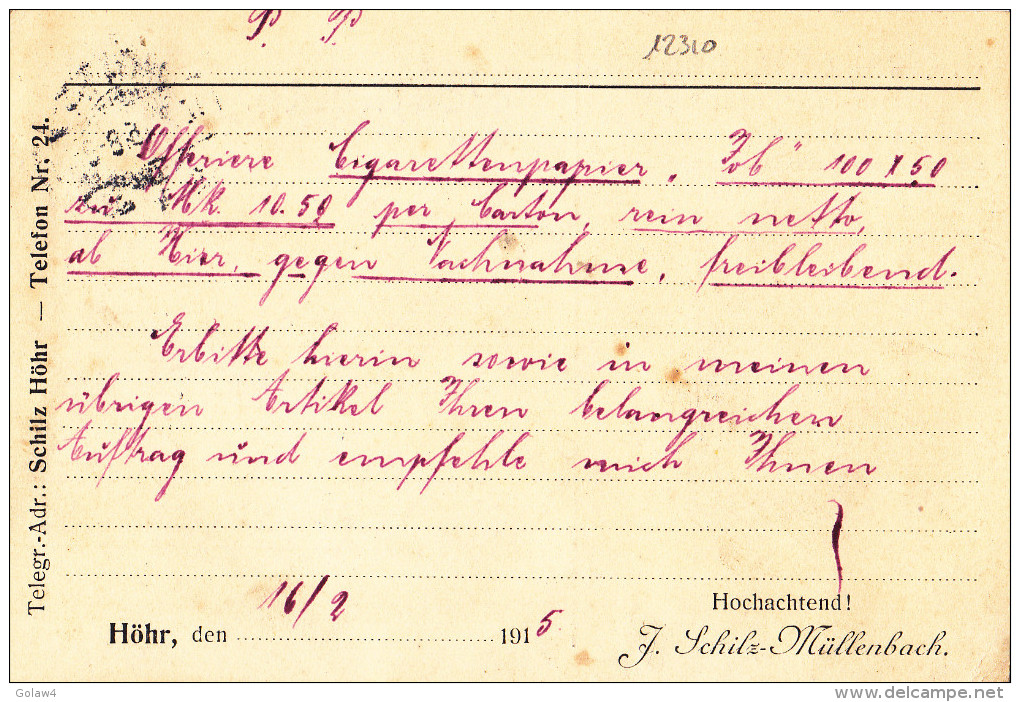 P. P.
12310
Offeriere Cigarettenpapier „Job" 100 x 50
zu Mk. 10.50 per Carton, rein netto,
ab Hier, gegen Nachnahme, freibleibend.
Erbitte hierin sowie in meinen
übrigen Artikel Ihren belangreichen
Auftrag und empfehle mich Ihnen
Hochachtend!
16/2
Höhr, den 1915
J. Schilz-Müllenbach.
Telegr.-Adr.: Schilz Höhr — Telefon Nr. 24.
Golaw4
www.delcampe.net